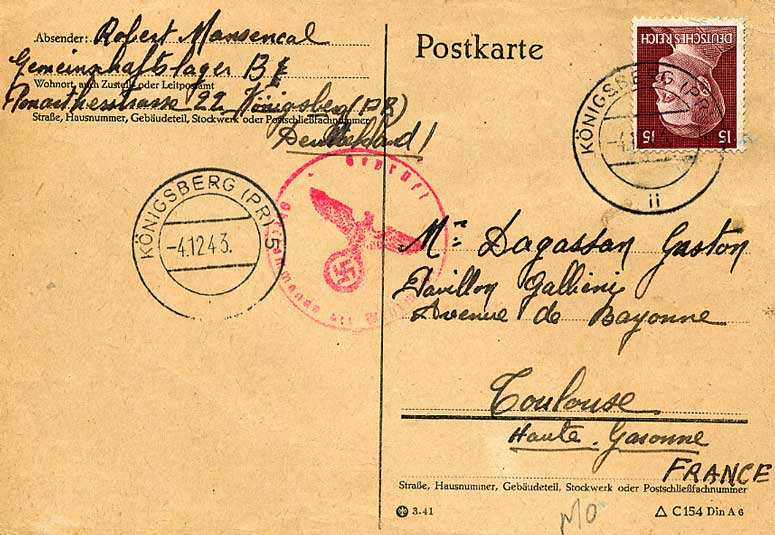 Absender: Robert Mansencal
Gemeinschaftslager B
Wohnort, auch Zustell- oder Leitpostamt
22 Königsberg (PR)
Straße, Hausnummer, Gebäudeteil, Stockwerk oder Postschließfachnummer
Deutschland!
Postkarte
DEUTSCHES REICH
15 15
KÖNIGSBERG (PR)
-4.1
ii
KÖNIGSBERG (PR) 5
-4.12 43.
Geprüft
Mr Dagassan Gaston
Pavillon Galliéni
Avenue de Bayonne
Toulouse
Haute-Garonne
FRANCE
Straße, Hausnummer, Gebäudeteil, Stockwerk oder Postschließfachnummer
3.41
C 154 Din A 6